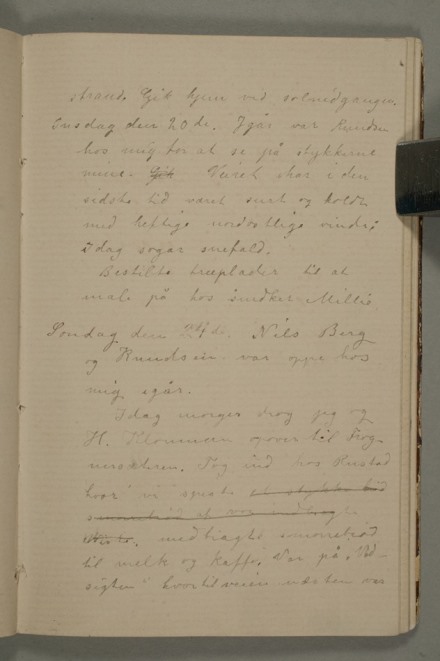 strand. Gik hjem ved solnedgangen.
Onsdag den 20de. Igår var Knudsen
hos mig for at se på stykkerne
mine. Gik Veiret har i den
sidste tid været surt og koldt
med heftige nordostlige vinde;
idag sogar snefald.
Bestilte træplader til at
male på hos snedker Millie.
Søndag den 24de. Nils Berg
og Knudsen var oppe hos
mig igår.
Idag morges drog jeg og
H. over til Frog-
nersæteren. Tog ind hos Rustad
hvor vi spiste et stykke
smørrebrød af vor indbragte
Niste. medbragt smørrebrød
til melk og kaffe. Var på „Ud-
sigten" hvortil veien næsten var